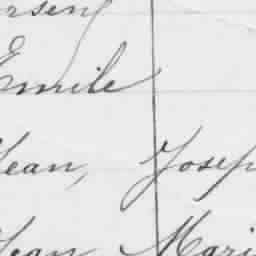 Emile
Jean, Josep
Jean Mari